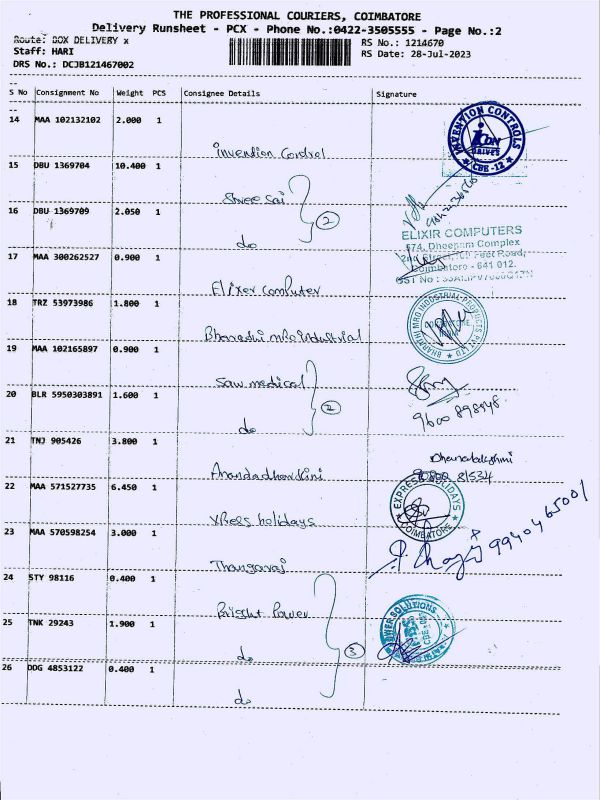 THE PROFESSIONAL COURIERS, COIMBATORE
Delivery Runsheet - PCX - Phone No.:0422-3505555 - Page No.:2
Route: BOX DELIVERY x
RS No.: 1214670
Staff: HARI
RS Date: 28-Jul-2023
DRS No.: DCJB121467002
S No Consignment No Weight PCS Consignee Details Signature
14 MAA 102132102 2.000 1
Invention Control
INVENTION CONTROLS
DRIVES
CBE-12
15 DBU 1369704 10.400 1
Shree Sai
16 DBU 1369709 2.050 1
2
do
17 MAA 300262527 0.900 1
ELIXIR COMPUTERS
574, Dheepam Complex
2nd Street, 100 Feet Road,
Coimbatore - 641 012.
GST No :
Elixer Computer
18 TRZ 53973986 1.800 1
Bharathi mro industrial
BHARATHI MRO INDUSTRIAL PRODUCTS PVT LTD
19 MAA 102165897 0.900 1
Saw medical
20 BLR 5950303891 1.600 1
2
do
21 TNJ 905426 3.800 1
Anandadhandhini
22 MAA 571527735 6.450 1
EXPRESS HOLIDAYS
COIMBATORE
XPress holidays
23 MAA 570598254 3.000 1
9940465001
Thangaraj
24 STY 98116 0.400 1
Bright Power
25 TNK 29243 1.900 1
POWER SOLUTIONS
3
do
26 DDG 4853122 0.400 1
do